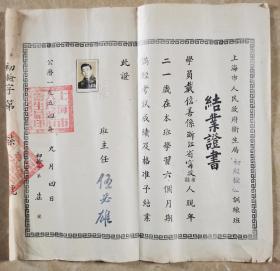 上海市人民政府衛生局
訓練班
結業證書
學員戴信善係浙江省寧波人現年
二一歲在本班學習六個月期
滿經考試成績及格准予結業
此證
班主任 伍必雄
公曆一九五四年九月四日
初檢字第